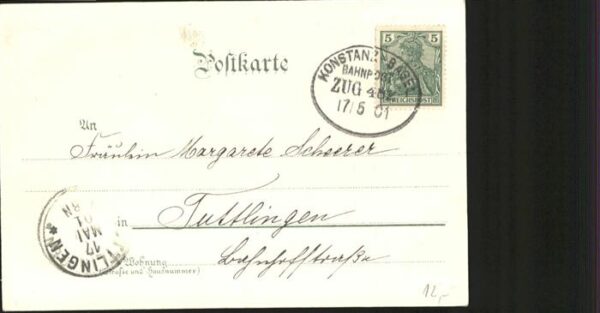 Postkarte
5 5
REICHSPOST
KONSTANZ - BASEL
BAHNPOST
ZUG
17/5 01
An
Fräulein Margarete Scheerer
in Tuttlingen
Wohnung Bahnhofstraße
(Straße und Hausnummer)
TUTTLINGEN
17
MAI
01
12,-